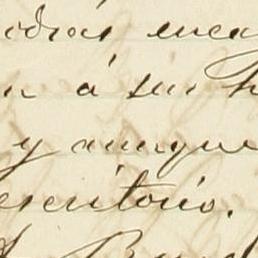 podrás enca
n á sus h
y aunque
escritorio.